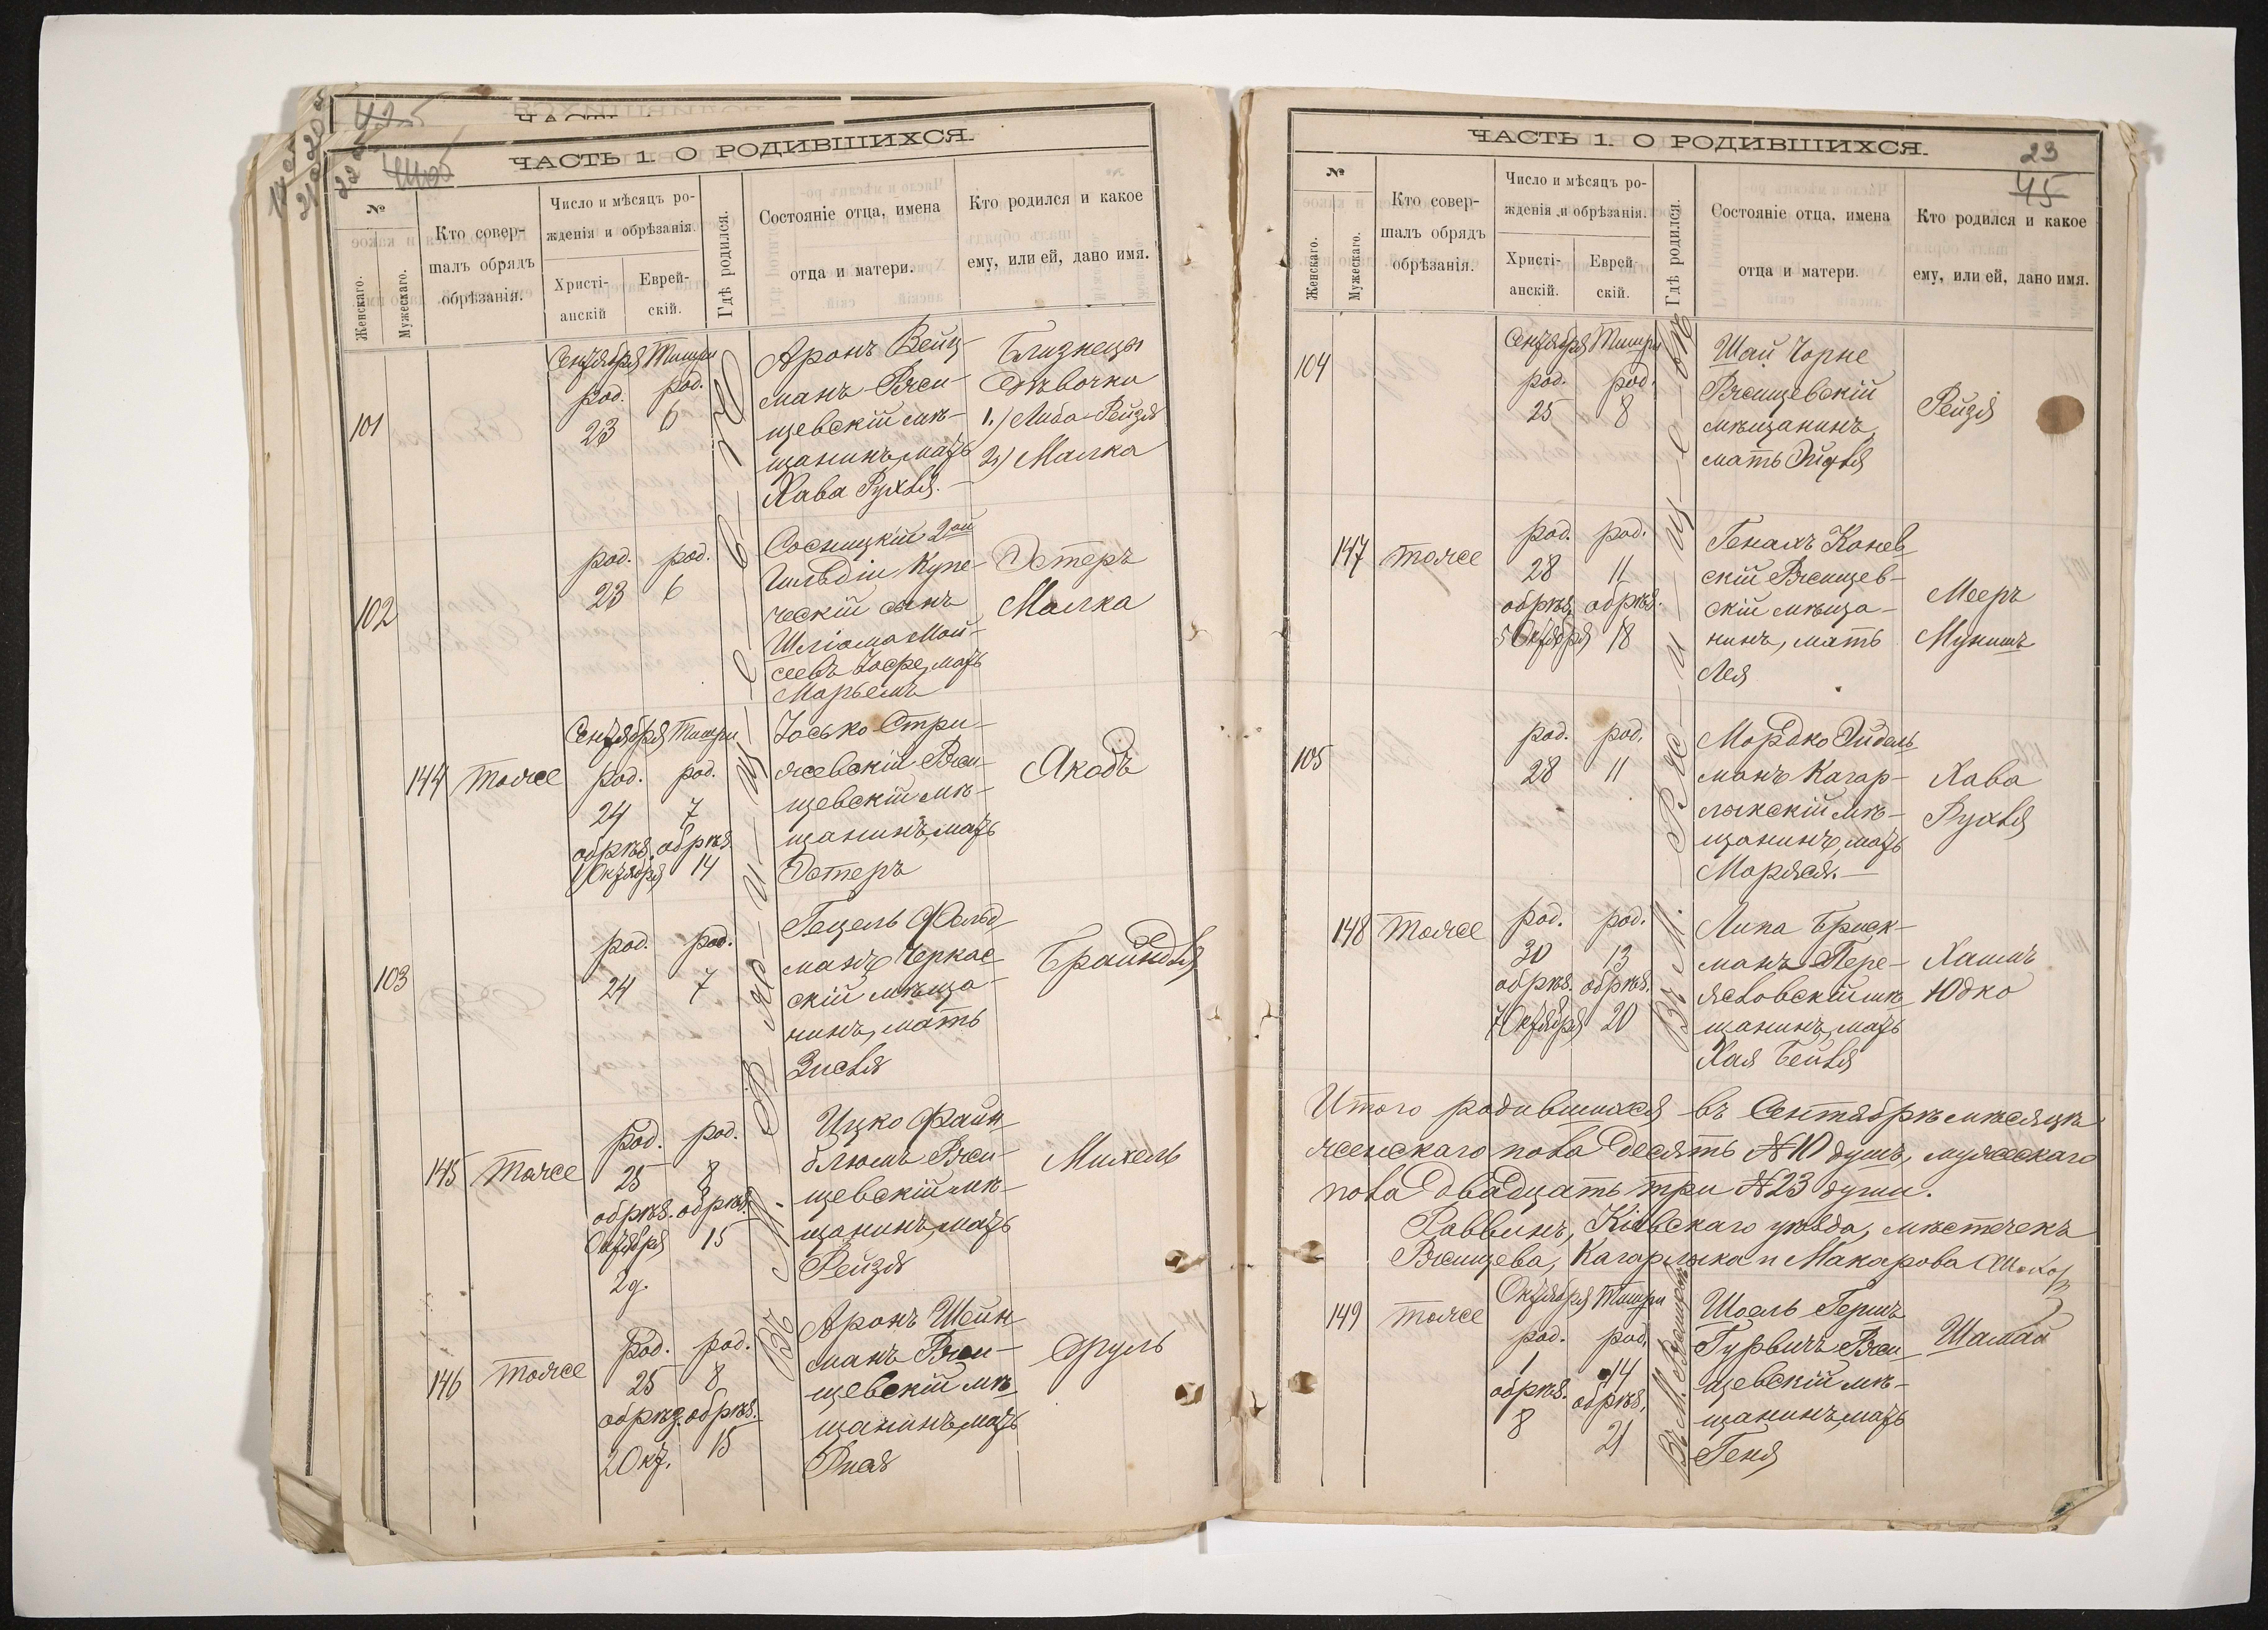 ЧАСТЬ 1. О РОДИВШИХСЯ.
№
Женскаго.
Мужескаго.
Кто совер-
шалъ обрядъ
обрѣзанія.
Число и мѣсяцъ ро-
жденія и обрѣзанія.
Христі-
анскій
Еврей-
скій.
Гдѣ родился.
Состояніе отца, имена
отца и матери.
Кто родился и какое
ему, или ей, дано имя.
101
Сентября Тишри
род. род.
23 6
Аронъ Вейц-
манъ Ржи-
щевскій мѣ-
щанинъ, мать
Хава Рухля.
Близнецы
Дѣвочки
1.) Либа Рейзя
2.) Малка
102
род. род.
23 6
Сосницкій 2ой
Гильдіи Купе-
ческій сынъ
Шліома Мой-
сеевъ Іофе, мать
Марьемъ
Эстеръ
Малка
144 тоже
Сентября Тишри
род. род.
24 7
обрѣз. обрѣз.
1 Октября 14
Іосько Стри-
жевскій Ржи-
щевскій мѣ-
щанинъ, мать
Эстеръ
Якобъ
103
род. род.
24 7
Гецель Фельд-
манъ Черкас-
скій мѣща-
нинъ, мать
Зисля
Брайндля
145 тоже
род. род.
25 8
обрѣз. обрѣз.
Октября 15
2д.
Ицко Файн-
блюмъ Ржи-
щевскій мѣ-
щанинъ, мать
Рейзя
Михель
146 тоже
род. род.
25 8
обрѣз. обрѣз.
2 Окт. 15
Аронъ Шейн-
манъ Ржи-
щевскій мѣ-
щанинъ, мать
Сруль
Въ М. Ржищевѣ
ЧАСТЬ 1. О РОДИВШИХСЯ.
23
45
№
Женскаго.
Мужескаго.
Кто совер-
шалъ обрядъ
обрѣзанія.
Число и мѣсяцъ ро-
жденія и обрѣзанія.
Христі-
анскій.
Еврей-
скій.
Гдѣ родился.
Состояніе отца, имена
отца и матери.
Кто родился и какое
ему, или ей, дано имя.
104
Сентября Тишри
род. род.
25 8
Шай Чорне
Ржищевскій
мѣщанинъ,
мать Эйдля
Рейзя
147 тоже
род. род.
28 11
обрѣз. обрѣз.
5 Октября 18
Генахъ Канев-
скій Ржищев-
скій мѣща-
нинъ, мать
Лея
Мееръ
Мунишъ
105
род. род.
28 11
Мордко Эйдель-
манъ Кагар-
лыкскій мѣ-
щанинъ, мать
Маряся.
Хава
Рухля
148 тоже
род. род.
30 13
обрѣз. обрѣз.
7 Октября 20
Липа Бриск-
манъ Пере-
яславскій мѣ-
щанинъ, мать
Хая Бейля
Хаимъ
Юдко
Въ М. Ржищевѣ
Итого родившихся въ Сентябрѣ мѣсяцѣ
женскаго пола Десять №10 душъ, мужескаго
пола Двадцать три №23 души.
Раввинъ, Кіевскаго уѣзда, мѣстечекъ
Ржищева, Кагарлыка и Макарова
149 тоже
Октября Тишри
род. род.
1 14
обрѣз. обрѣз.
8 21
Шоель Гершъ
Гурвичъ Ржи-
щевскій мѣ-
щанинъ, мать
Геня
Шамай
Въ М. Ржищевѣ